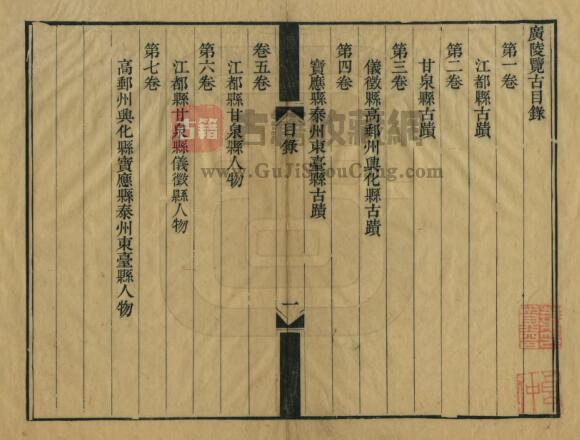 廣陵覽古目錄
第一卷
江都縣古蹟
第二卷
甘泉縣古蹟
第三卷
儀徵縣高郵州興化縣古蹟
第四卷
寶應縣泰州東臺縣古蹟
目錄
一
卷五卷
江都縣甘泉縣人物
第六卷
江都縣甘泉縣儀徵縣人物
第七卷
高郵州興化縣寶應縣泰州東臺縣人物
古籍
古籍收藏網
www.GuJiShouCang.com